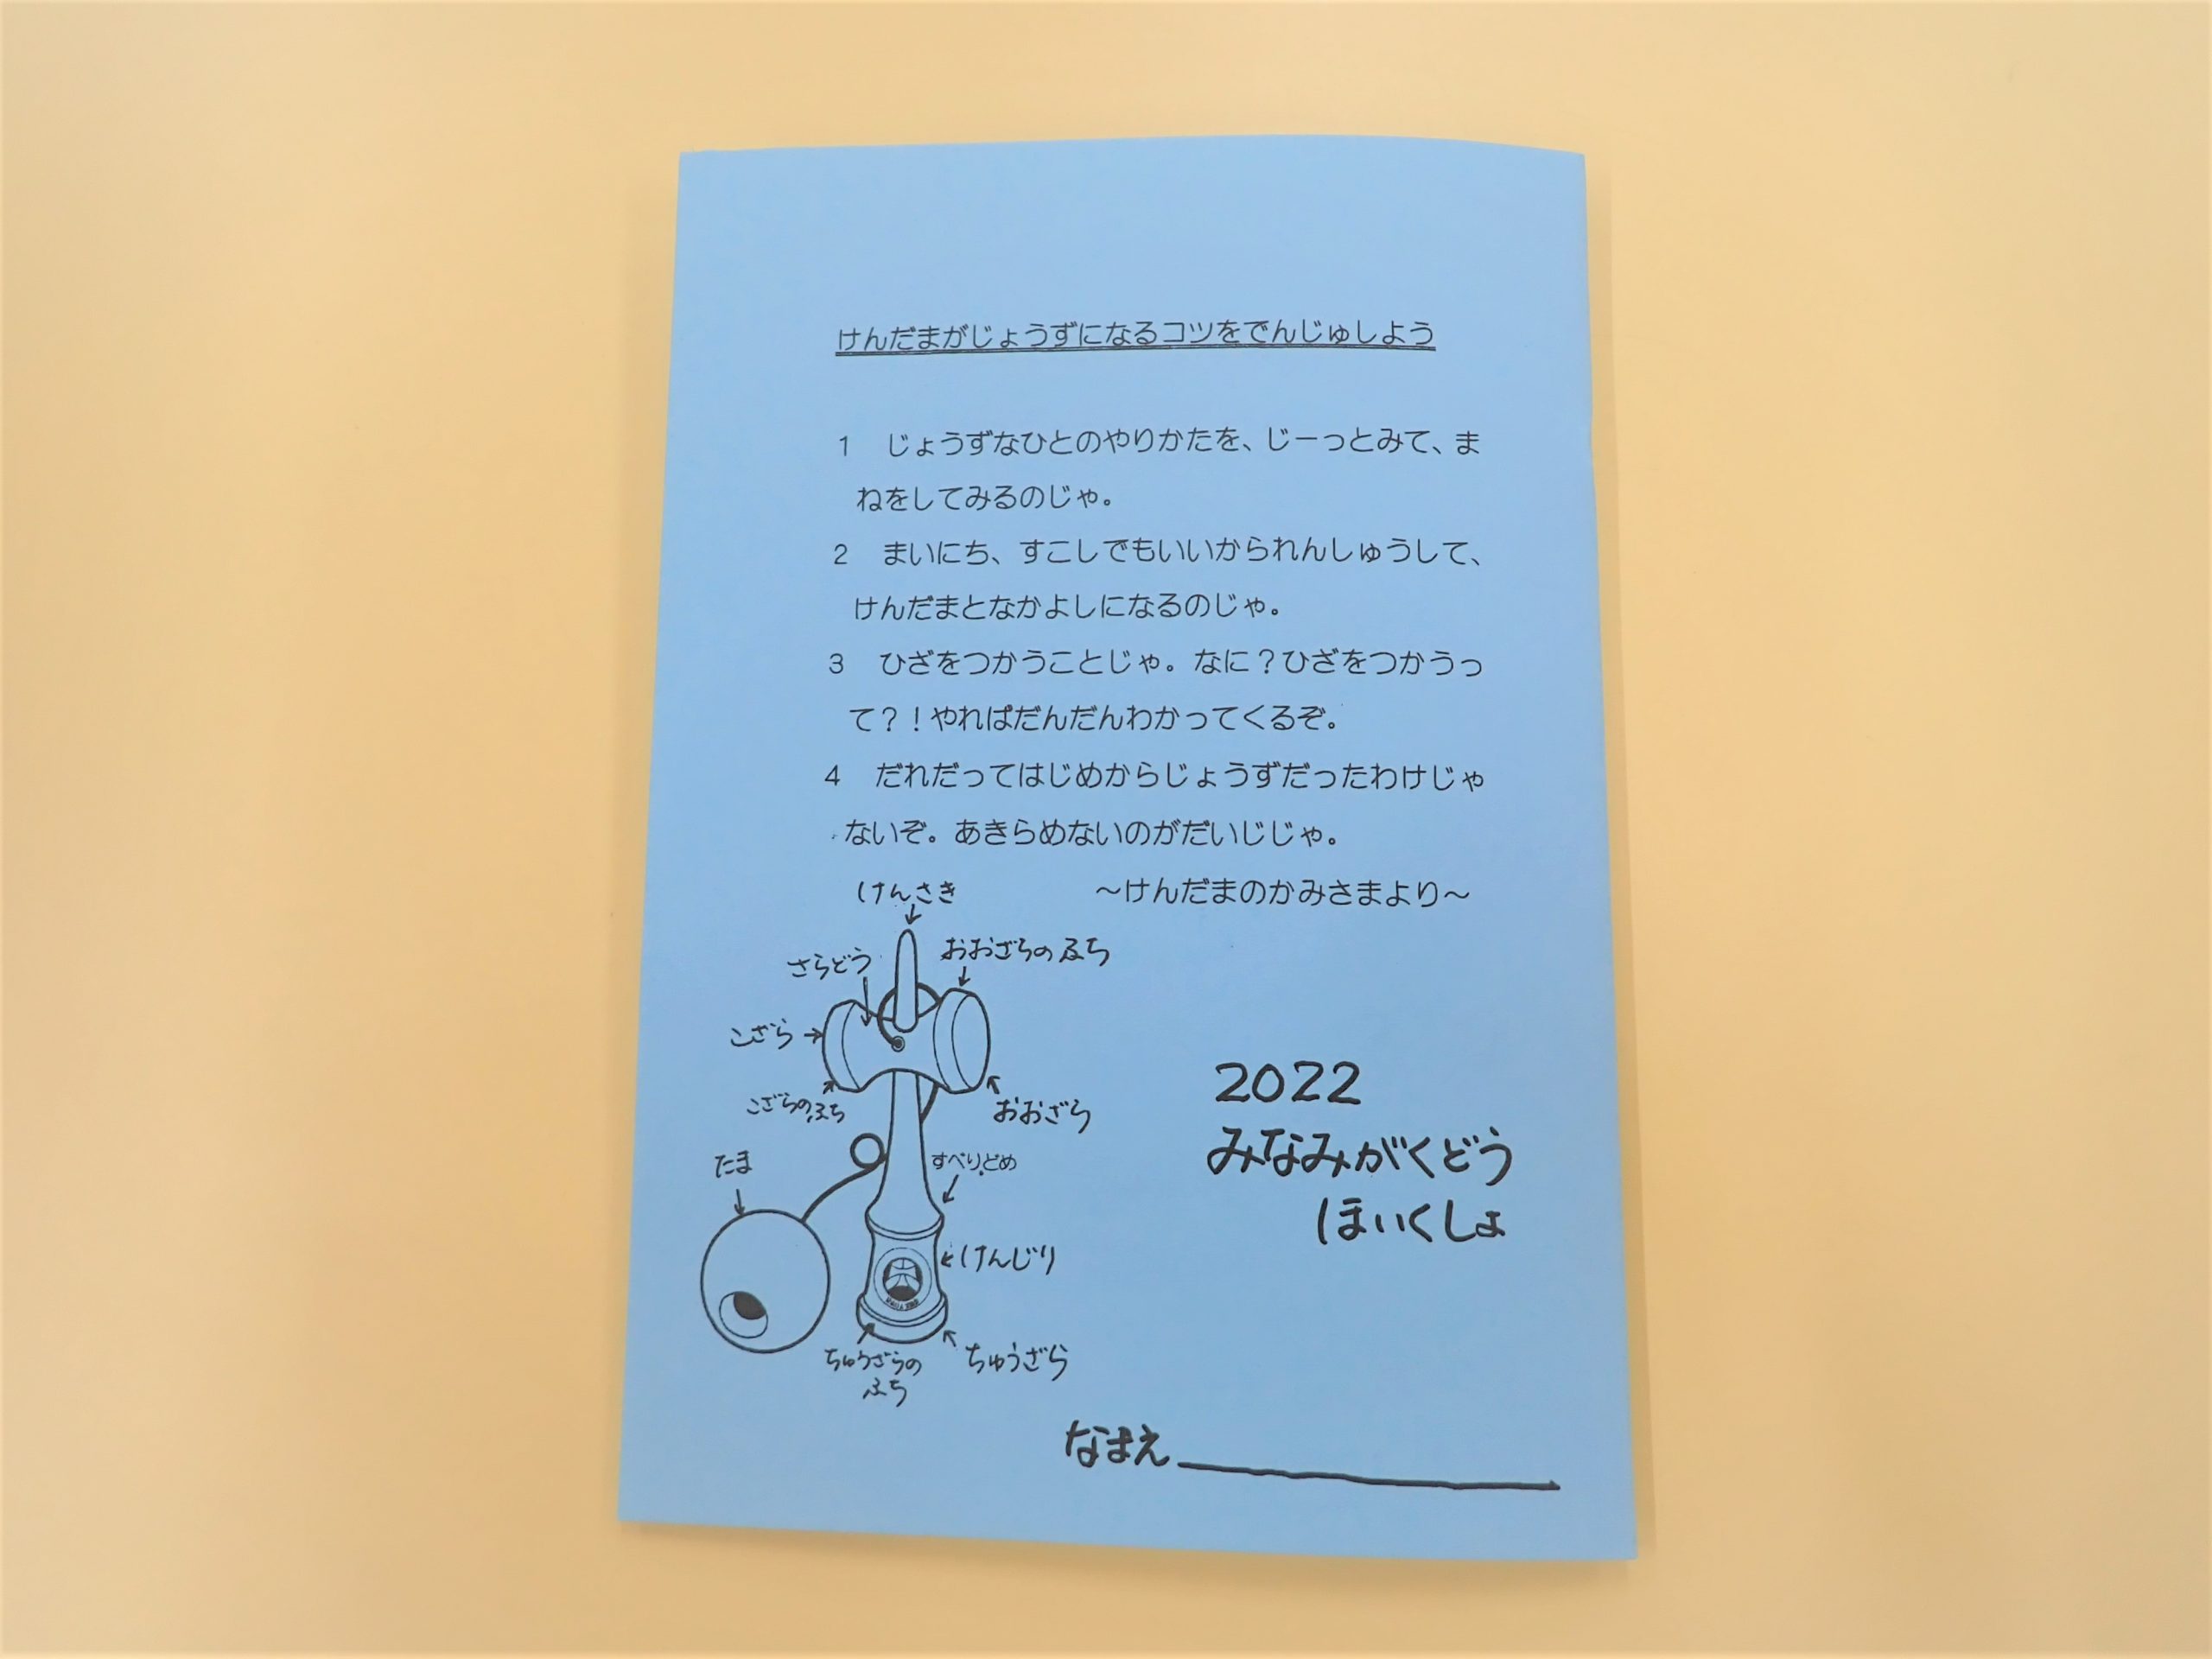 けんだまがじょうずになるコツをでんじゅしよう
1　じょうずなひとのやりかたを、じーっとみて、ま
ねをしてみるのじゃ。
2　まいにち、すこしでもいいかられんしゅうして、
けんだまとなかよしになるのじゃ。
3　ひざをつかうことじゃ。なに？ひざをつかうっ
て？！やればだんだんわかってくるぞ。
4　だれだってはじめからじょうずだったわけじゃ
ないぞ。あきらめないのがだいじじゃ。
～けんだまのかみさまより～
けんさき
おおざらのふち
さらどう
こざら
こざらのふち
おおざら
たま
すべりどめ
けんじり
ちゅうざらの
ふち
ちゅうざら
2022
みなみがくどう
ほいくしょ
なまえ